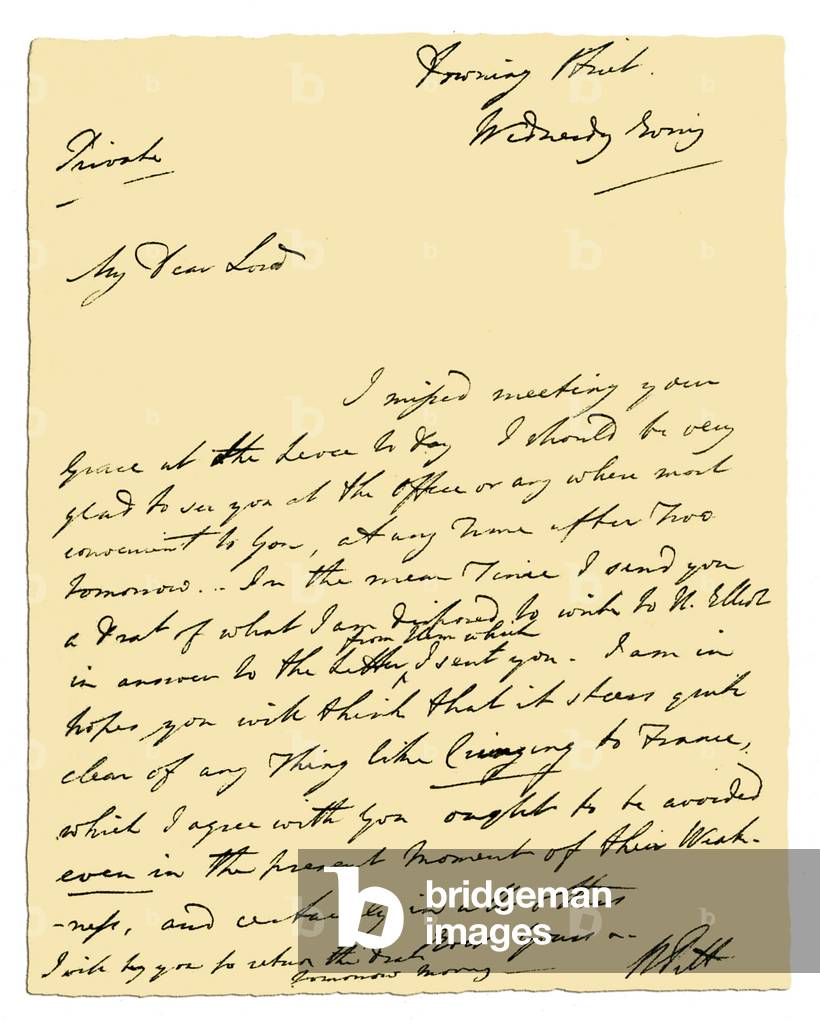 Downing Street.
Wednesday Evening
Private
My Dear Lord
I missed meeting your
Grace at the Levee to day I should be very
glad to see you at the office or any where most
convenient to you, at any Time after Two
tomorrow... In the mean Time I send you
a Drat of what I am disposed to write to H. Elliot
from Him which
in answer to the Letter ^ I sent you. I am in
hopes you will think that it steers quite
clear of any Thing like Cringing to France,
which I agree with you ought to be avoided
even in the present Moment of their Weak-
-ness, and certainly in all others
Ever yours
I will beg you to return the Drat
tomorrow morng
W Pitt
bridgeman
images